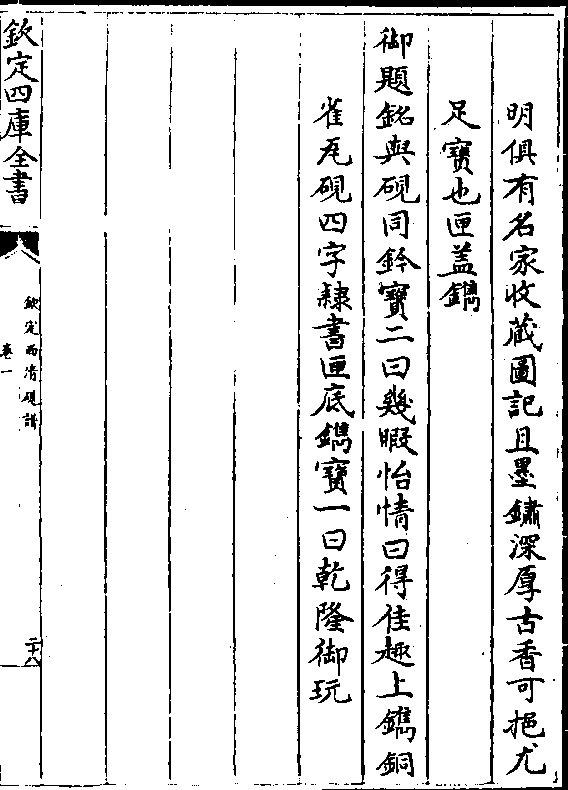 明俱有名家收藏圖記且墨鏽深厚古香可挹尤
足寶也匣盖鐫
御題銘與硯同鈐寶二曰幾暇怡情曰得佳趣上鐫銅
雀瓦硯四字隸書匣底鐫寶一曰乾隆御玩
欽定四庫全書
欽定西清硯譜
卷一
二十八